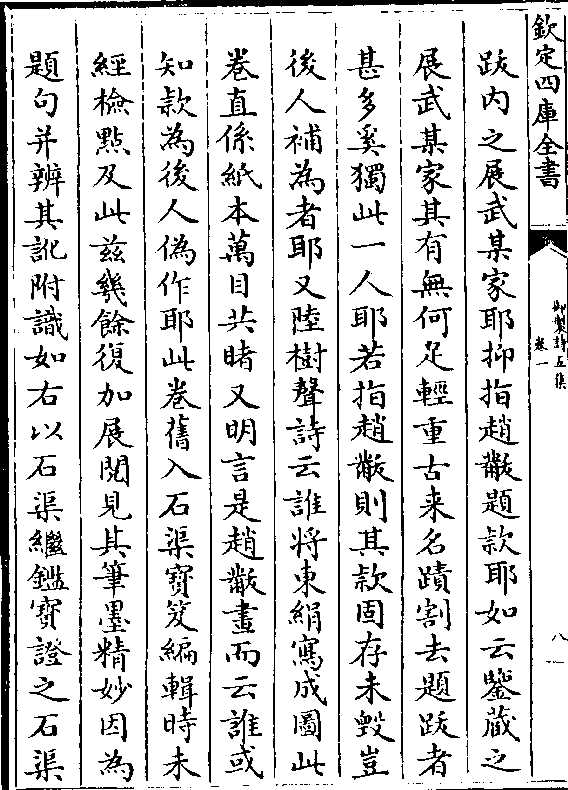 欽定四庫全書
御製詩五集
卷一
八
跋内之展武某家耶抑指趙黻題款耶如云鑒蔵之
展武某家其有無何足輕重古来名蹟割去題跋者
甚多奚獨此一人耶若指趙黻則其款固存未毀豈
後人補為者耶又陸樹聲詩云誰将東絹寫成圖此
卷直係紙本萬目共睹又明言是趙黻畫而云誰或
知款為後人偽作耶此卷舊入石渠寶笈編輯時未
經檢點及此兹幾餘復加展閱見其筆墨精妙因為
題句并辨其訛附識如右以石渠繼鑑寶證之石渠